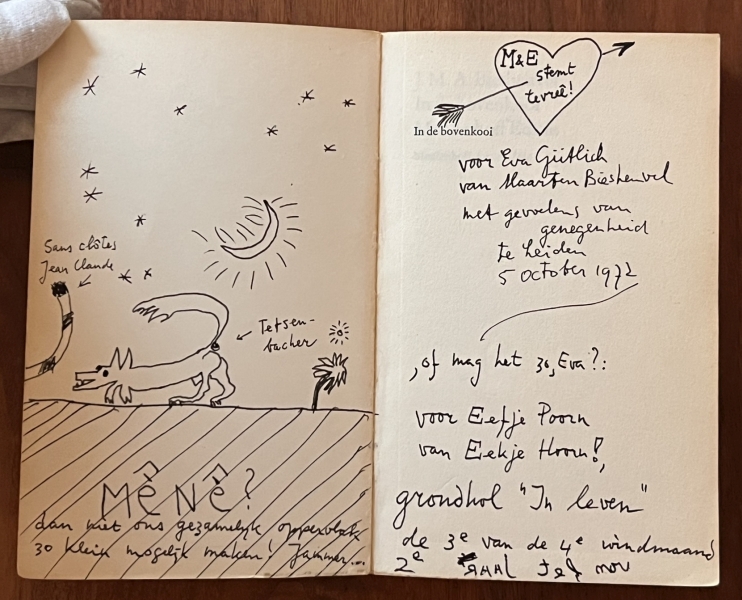 Sans clôtes
Jean Claude
Tetsen-
bacher
MÊNÊ?
dan niet ons gezamelijk oppervlak
zo klein mogelijk maken! Jammer...
M&E
stemt
tevreê!
In de bovenkooi
voor Eva Gütlich
van Maarten Biesheuvel
met gevoelens van
genegenheid
te Leiden
5 october 1972
, of mag het zo, Eva?:
voor Eefje Poorn
van Eekje Hoorn!,
grondhol "In leven"
de 3e van de 4e windmaand
2e